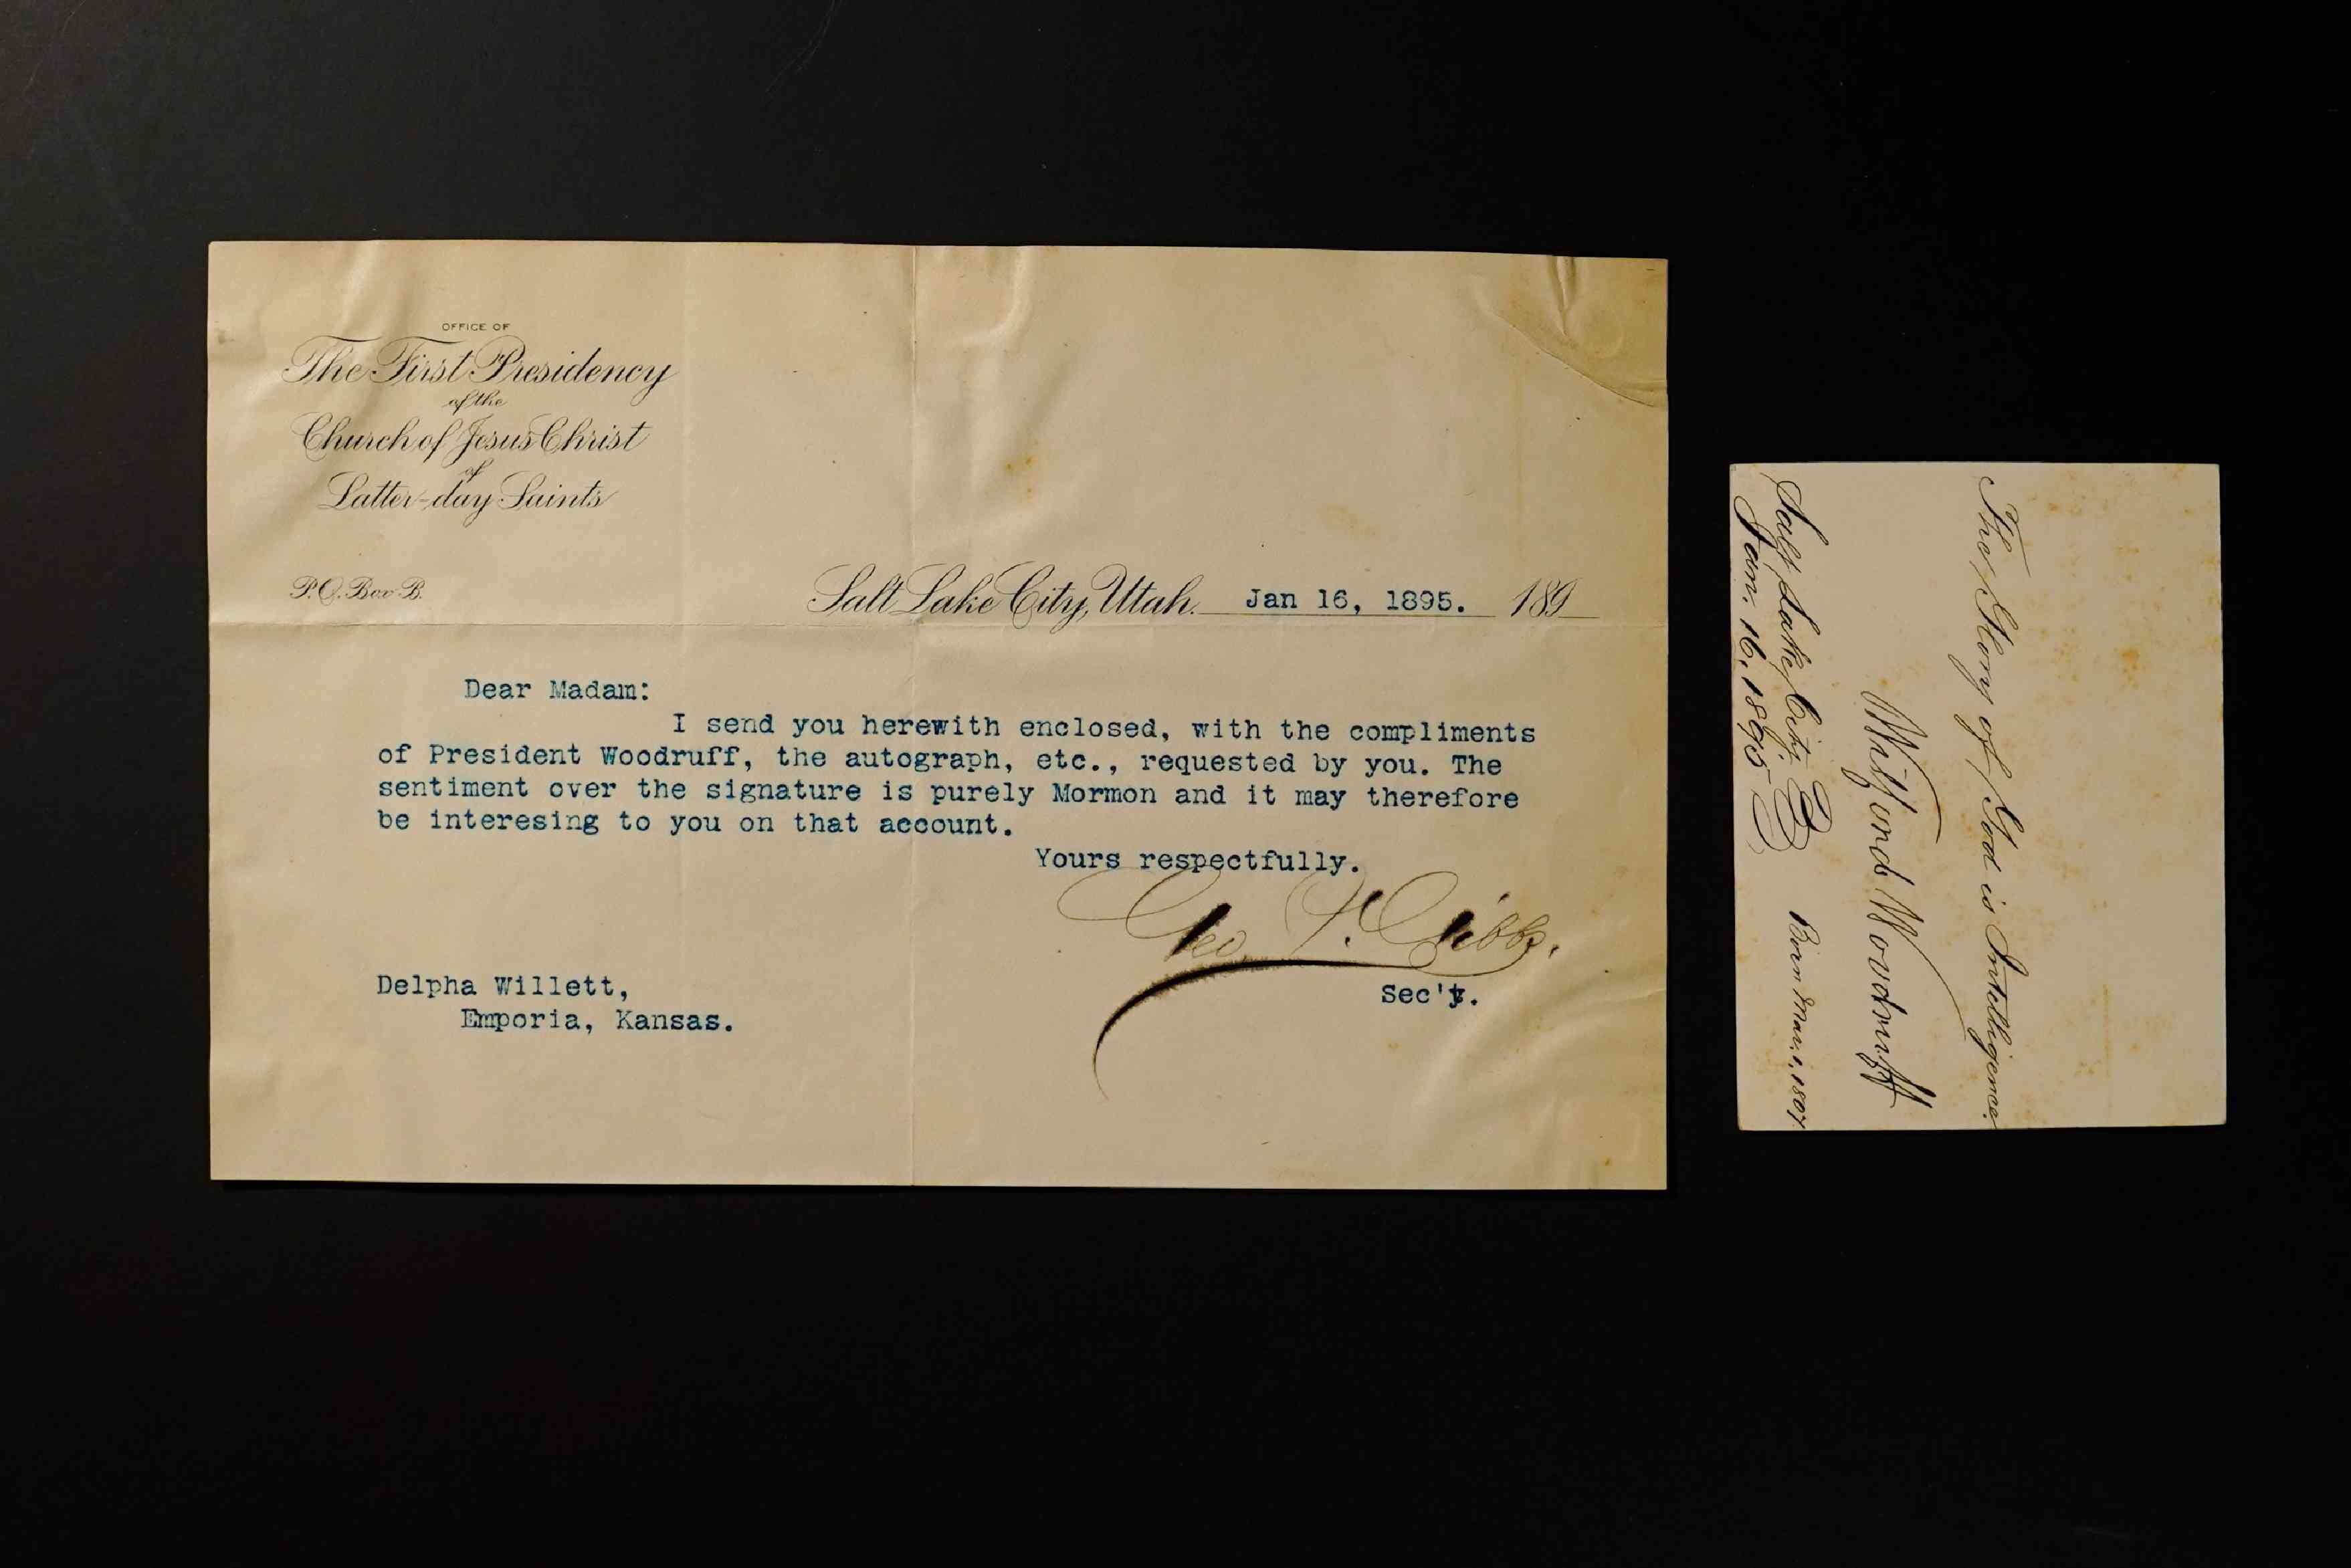 OFFICE OF
The First Presidency
of the
Church of Jesus Christ
of
Latter-day Saints
P.O. Box B.
Salt Lake City, Utah. Jan 16, 1895. 189
Dear Madam:
I send you herewith enclosed, with the compliments
of President Woodruff, the autograph, etc., requested by you. The
sentiment over the signature is purely Mormon and it may therefore
be interesing to you on that account.
Yours respectfully.
Geo. F. Gibbs.
Sec'y.
Delpha Willett,
Emporia, Kansas.
The Glory of God is Intelligence.
Wilford Woodruff
Born Mar. 1, 1807.
Salt Lake City,
Jan. 16, 1895